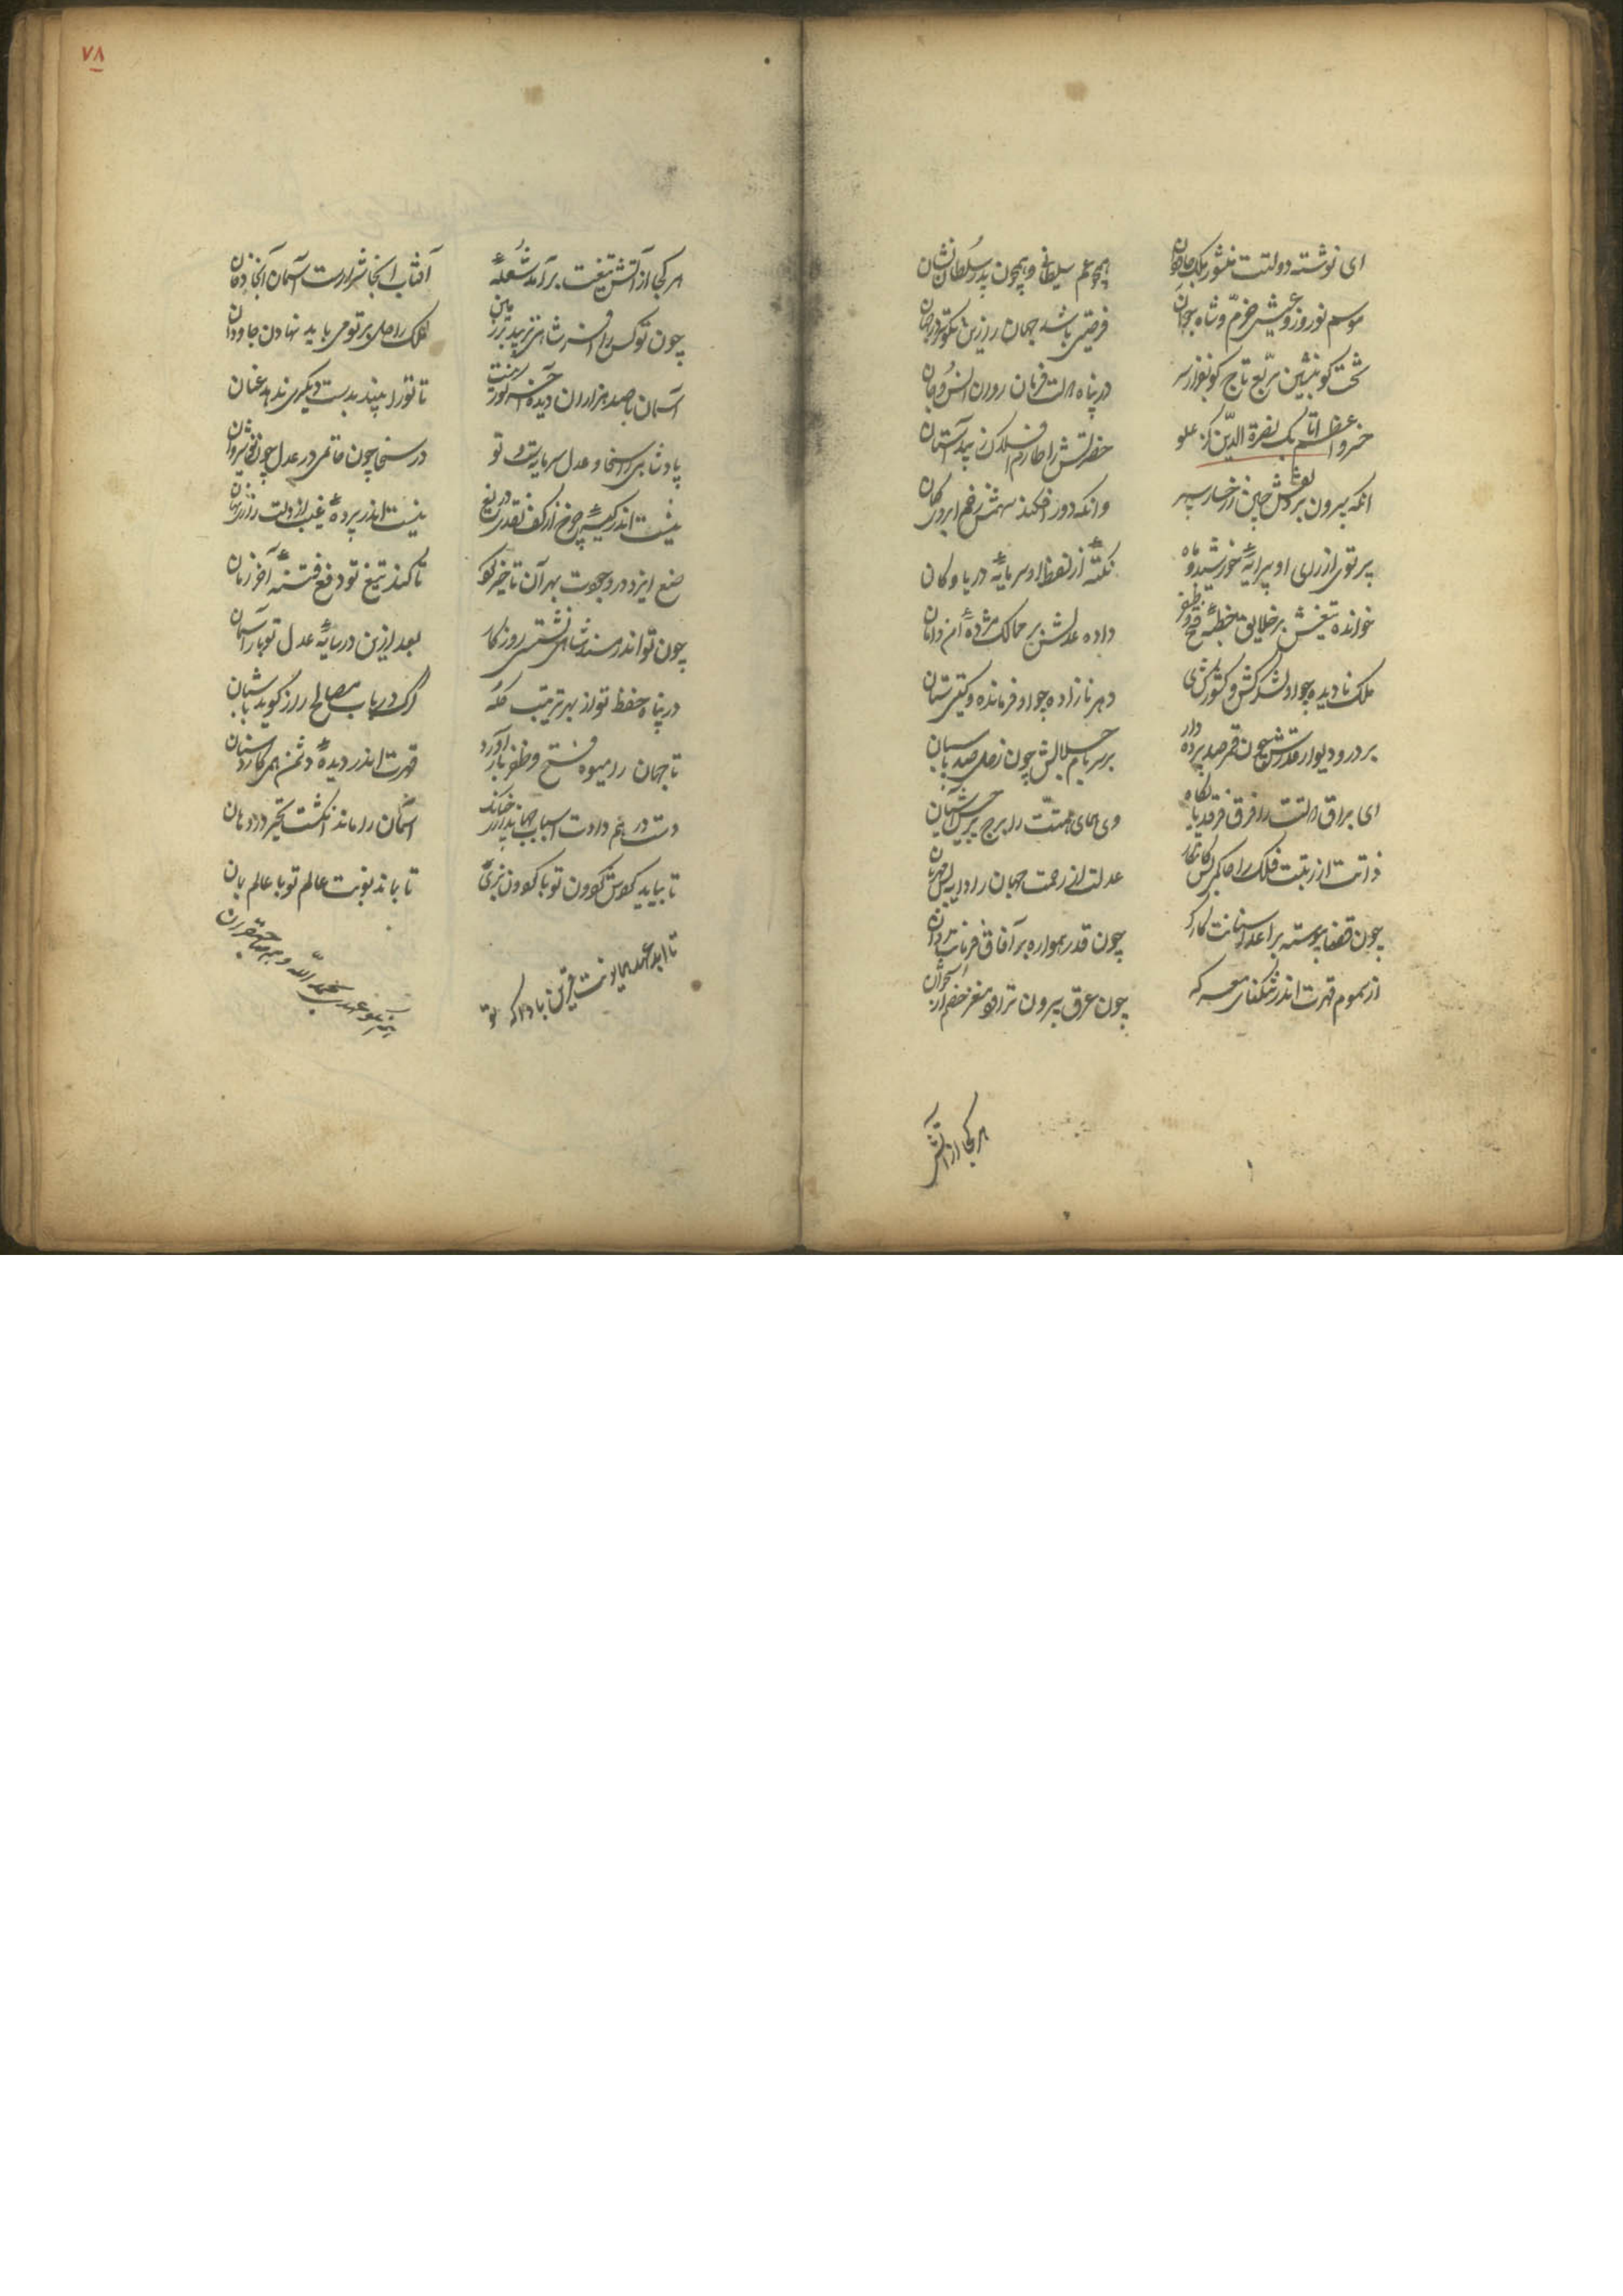 ای نوشته دولتت منشور ملک جاودان
همچو عم سلطانی و همچون پدر سلطان نشان
موسم نوروز و عیشی خرم و شاه جوان
فرصتی باشد جهان را زین نکوتر در جهان
تخت کو بنشین مربع تاج کو بفراز سر
در پناه دولت فرمان روان انس و جان
خسرو اعظم اتابک نصرة الدین کز علو
حضرتش را طارم افلاک زیبد آستان
آنکه بیرون برد نعلش چین ز رخسار سپهر
وانکه دور افکند سهمش زخم ابروی کمان
پرتوی از رای او پیرایهٔ خورشید و ماه
نکتهٔ از لفظ او سرمایهٔ دریا و کان
خوانده تیغش بر خلایق خطبهٔ فتح و ظفر
داده عدلش بر ممالک مژدهٔ امن و امان
ملک نادیده چو او لشکرکش و کشورگشای
دهر نازاده چو او فرمانده و گیتی ستان
بر در و دیوار قدرش همچون قمر صد پرده دار
بر سر بام جلالش چون زحل صد پاسبان
ای براق دولتت را فرق فرقد پایگاه
وی همای همتت را برج برجیس آشیان
ذات از رتبت فلک را حاکم کامکار
عدلت از رحمت جهان را دایهٔ بس مهربان
چون قضا پیوسته بر اعدا سنانت کارگر
چون قدر همواره بر آفاق فرمانت روان
از سموم قهرت اندر تنگنای معرکه
چون عرق بیرون تراود مغز خصم از استخوان
هر کجا از آتش
۷۸
هر کجا از آتش تیغت برآمد شعلهٔ
آفتاب آنجا شرارست آسمان آنجا دخان
چون تو کس را افسر شاهی نزیبد بر زمین
ملک را دل بر تو می باید نهادن جاودان
آسمان با صد هزاران دیده
تا تو را بیند بدست دیگری ندهد عنان
پادشاهی را سخا و عدل سرمایست و تو
در سخا چون حاتمی در عدل چون نوشیروان
نیست اندر کیسهٔ چرخ از کفت نقدی دریغ
نیست اندر پردهٔ غیب از دلت رازی نهان
صنع ایزد در وجودت بهر آن تاخیر کرد
تا کند تیغ تو دفع فتنهٔ آخر زمان
چون تو اندر مسند شاهی نشستی روزگار
بعد ازین در سایهٔ عدل تو باز آسمان
در پناه حفظ تو از بهر ترتیب گله
گرگ در باب مصالح راز گوید با شبان
تا جهان را میوه فتح و ظفر باز آورد
قهرت اندر دیدهٔ دشمن همی کارد سنان
دست در هم داد اسباب جهانداری چنانک
آسمان را ماند انگشت تحیر در دهان
تا بیاید کوس گردون تو با گردون بزن
تا بماند نوبت عالم تو با عالم بمان
تا ابد عهد همایونت قرین باد آنکه تو